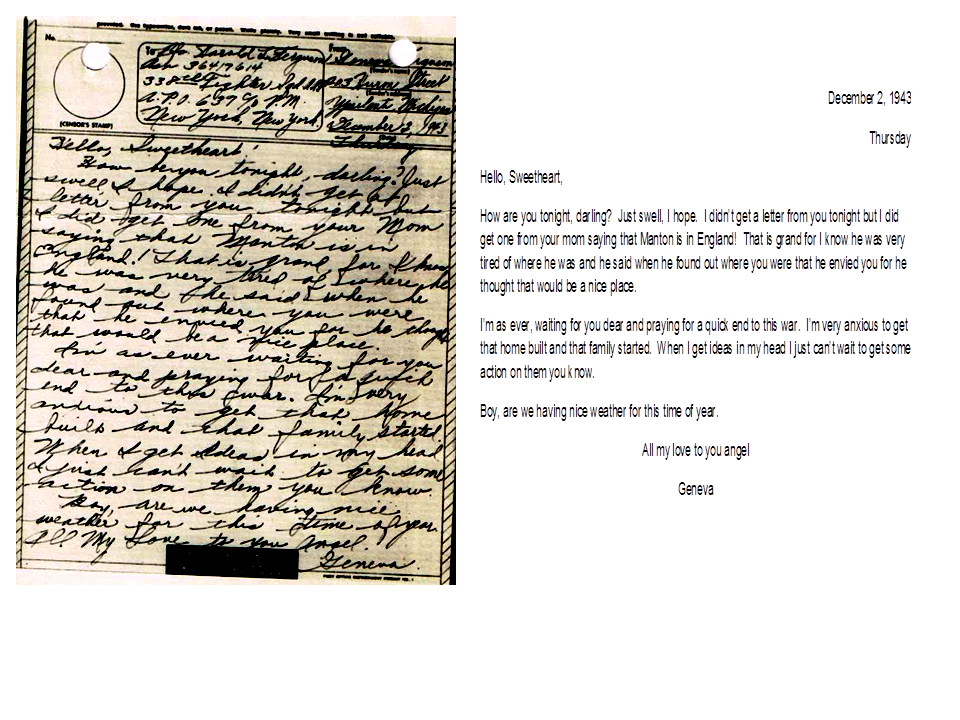 provided. Use typewriter, dark ink, or pencil. Write plainly. Very small writing is not suitable.
No.
(CENSOR'S STAMP)
To Pfc. Harold L. Ferguson
Asn 36417614
338th Fighter Sqd.
A.P.O. 637 c/o P.M.
New York, New York.
From
Ferguson
(Sender's name)
Street
(Sender's address)
Ypsilanti Michigan
December 2, 1943
(Date)
Thursday
Hello, Sweetheart!
How be you tonight, darling? Just
swell I hope. I didn't get a
letter from you tonight but
I did get one from your Mom
saying that Manton is in
England! That is grand for I know
he was very tired of where he
was and he said when he
found out where you were
that he envied you for he thought
that would be a nice place.
I'm as ever waiting for you
dear and praying for a quick
end to this war. I'm very
anxious to get that home
built and that family started.
When I get ideas in my head
I just can't wait to get some
action on them you know.
Boy, are we having nice
weather for this time of year.
All My Love to You Angel.
Geneva.
December 2, 1943
Thursday
Hello, Sweetheart,
How are you tonight, darling? Just swell, I hope. I didn't get a letter from you tonight but I did
get one from your mom saying that Manton is in England! That is grand for I know he was very
tired of where he was and he said when he found out where you were that he envied you for he
thought that would be a nice place.
I'm as ever, waiting for you dear and praying for a quick end to this war. I'm very anxious to get
that home built and that family started. When I get ideas in my head I just can't wait to get some
action on them you know.
Boy, are we having nice weather for this time of year.
All my love to you angel
Geneva